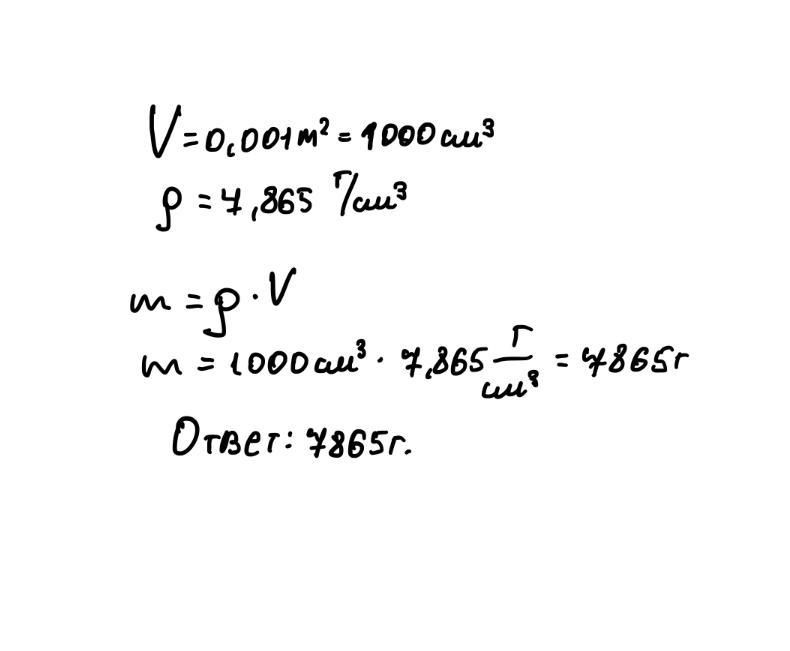 V = 0,001 м² = 1000 см³
ρ = 7,865 г/см³
m = ρ · V
m = 1000 см³ · 7,865 г/см³ = 7865 г
Ответ: 7865 г.